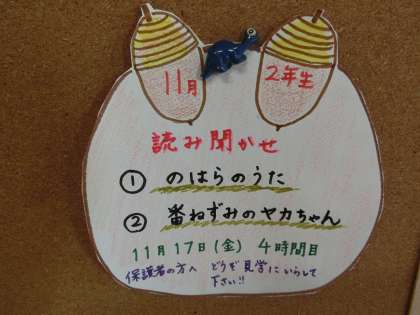 11月 2年生
読み聞かせ
① のはらのうた
② 番ねずみのヤカちゃん
11月17日(金) 4時間目
保護者の方へ どうぞ見学にいらして
下さい!!